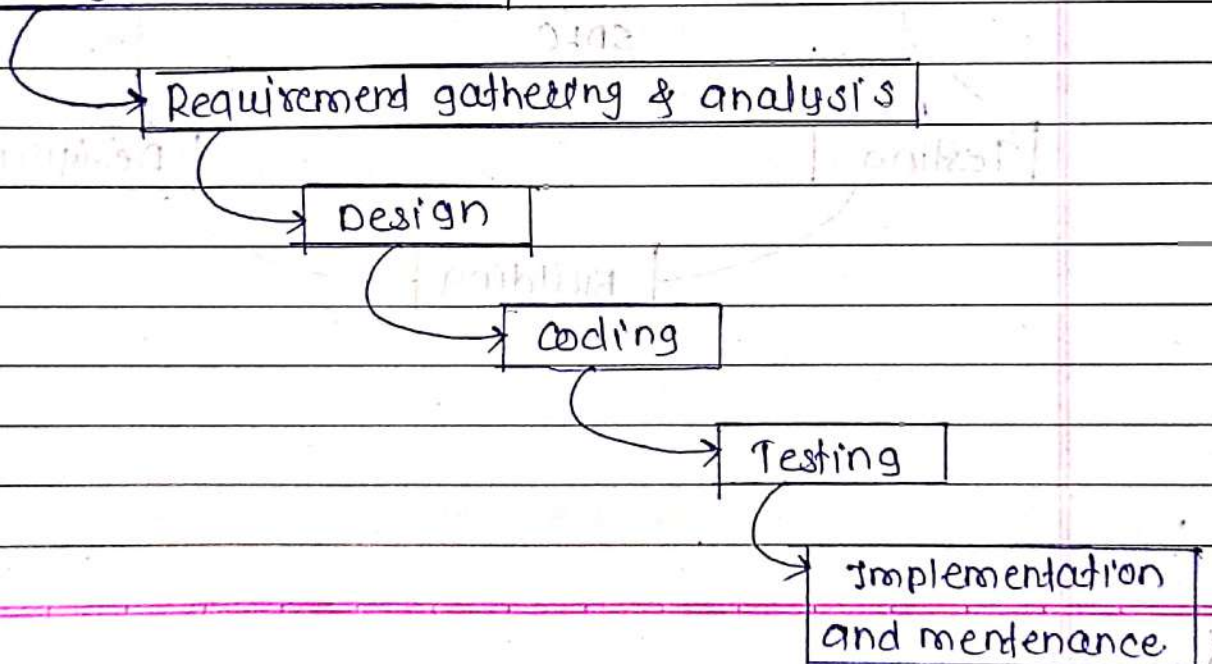 Requirement gathering & analysis
Design
coding
Testing
Implementation
and mentenance